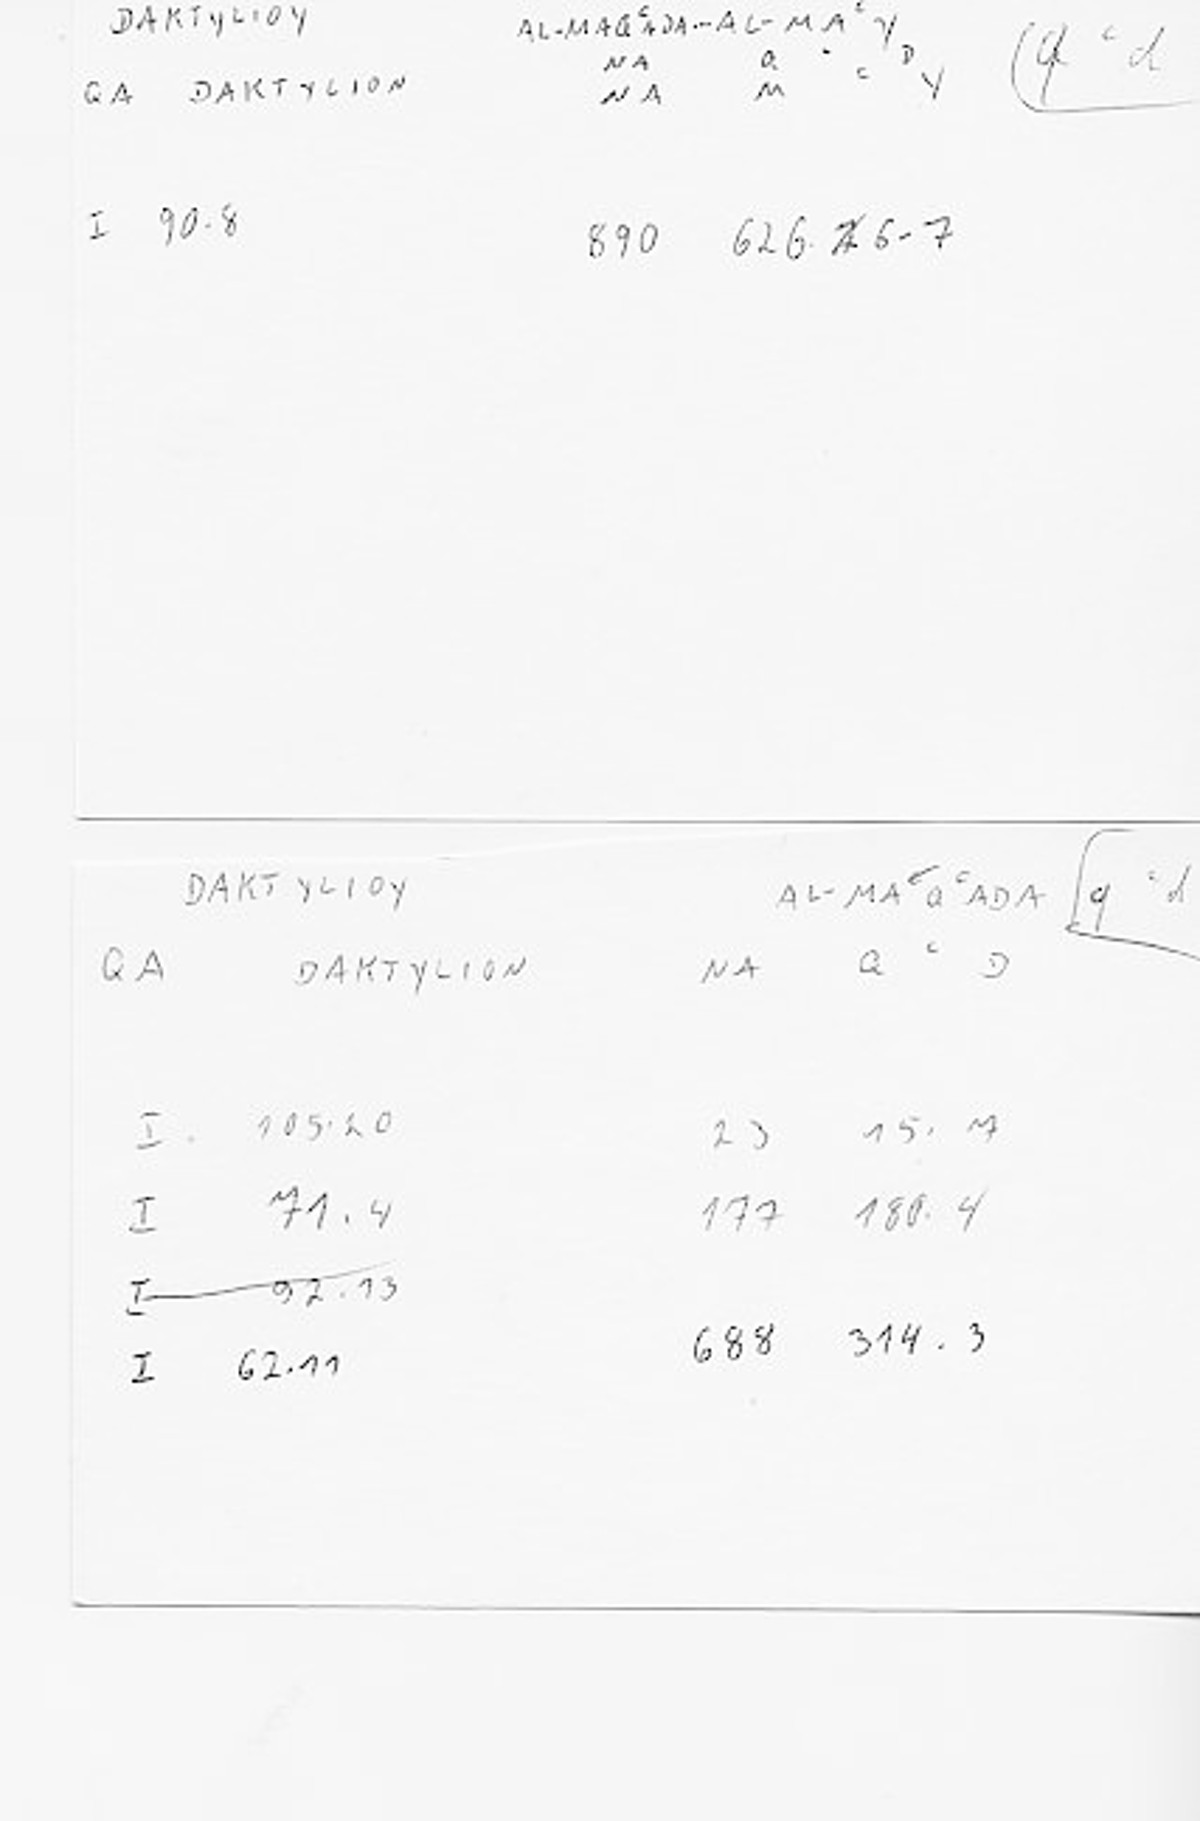 DAKTYLIOY AL-MAQᶜADA--AL-MAᶜY (q ᶜd
NA Q ᶜ D
QA DAKTYLION NA M ᶜ Y
I 90.8 890 626. 6-7
DAKTYLIOY AL-MAQᶜADA q ᶜd
QA DAKTYLION NA Q ᶜ D
I. 105.20 23 15. 7
I 71.4 177 180.4
I 92.13
I 62.11 688 314.3